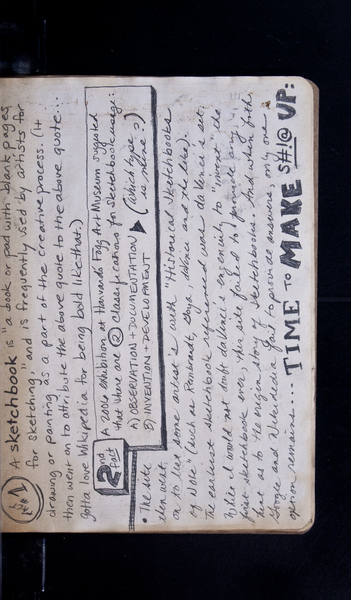 A sketchbook is "a book or pad with blank pages
for sketching," and is frequently used by artists for
drawing or painting as a part of the creative process. (It
then went on to attribute the above quote to the above quote...
Gotta love Wikipedia for being bold like that.)
2nd fact
A 2006 exhibition at Harvard's Fogg Art Museum suggested
that there are 2 classifications for sketchbook usage:
A) OBSERVATION + DOCUMENTATION
B) INVENTION + DEVELOPMENT
(Which type is mine?)
• The site
then went
on to list some artist's with "Historical Sketchbooks
of Note" (such as Rembrandt, Goya, daVince and the like).
The earliest sketchbook referenced were daVince's set.
While I would not doubt daVince's ingenuity to "invent" the
first sketchbook ever, this site failed to provide any
as to the origin story of sketchbooks. And when both
Google and Wikipedia fail to provide answers, only one
option remains... TIME TO MAKE S#!@ UP: